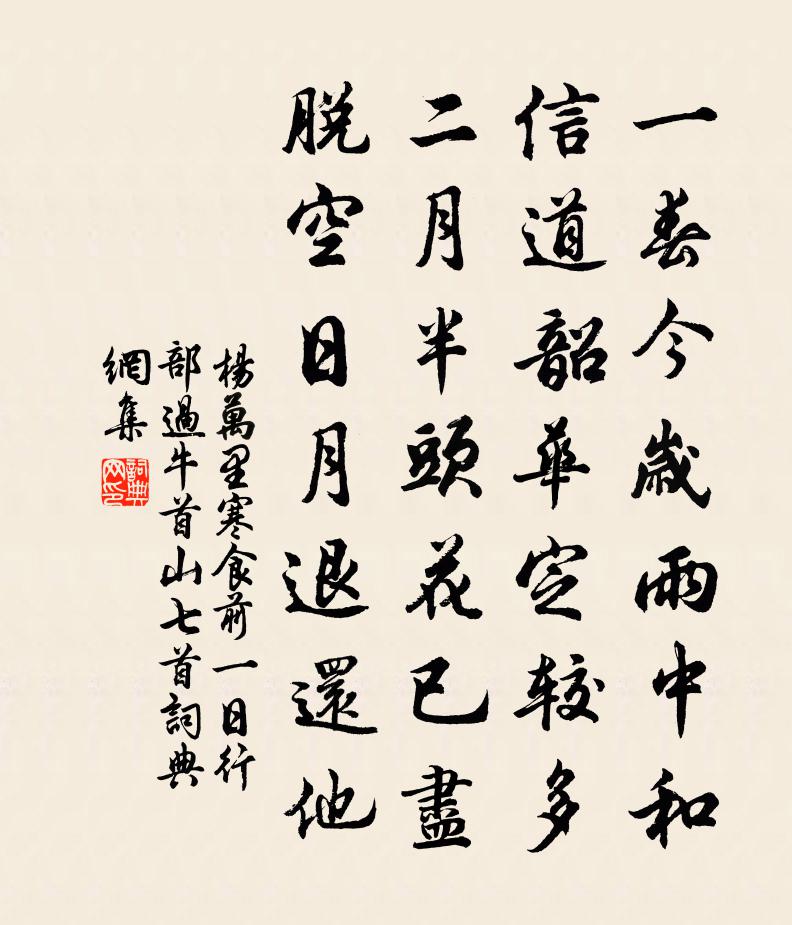 一春今歲雨中和
信道韶華定較多
二月半頭花已盡
脫空日月退還他
楊萬里寒食前一日行
部過牛首山七首詞典
網集
詞典
网印